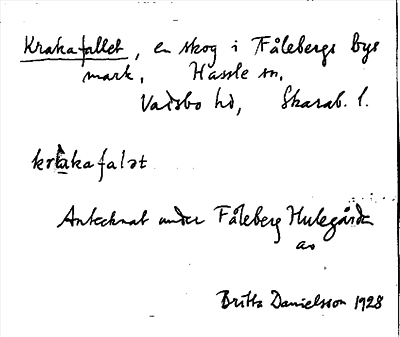 Krakafallet, en skog i Fålebergs bys
mark, Hassle sn,
Vadsbo hd, Skarab. l.
krakafalət
Antecknat under Fåleberg Hulegården
av
Britta Danielsson 1928